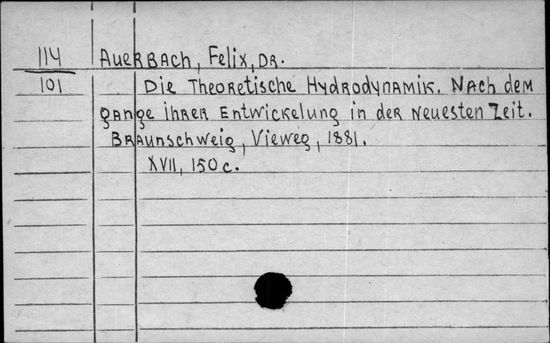 114 Auerbach, Felix, Dr.
101 Die Theoretische Hydrodynamik. Nach dem
gange ihrer Entwickelung in der Neuesten Zeit.
Braunschweig, Vieweg, 1881.
XVII, 150 c.